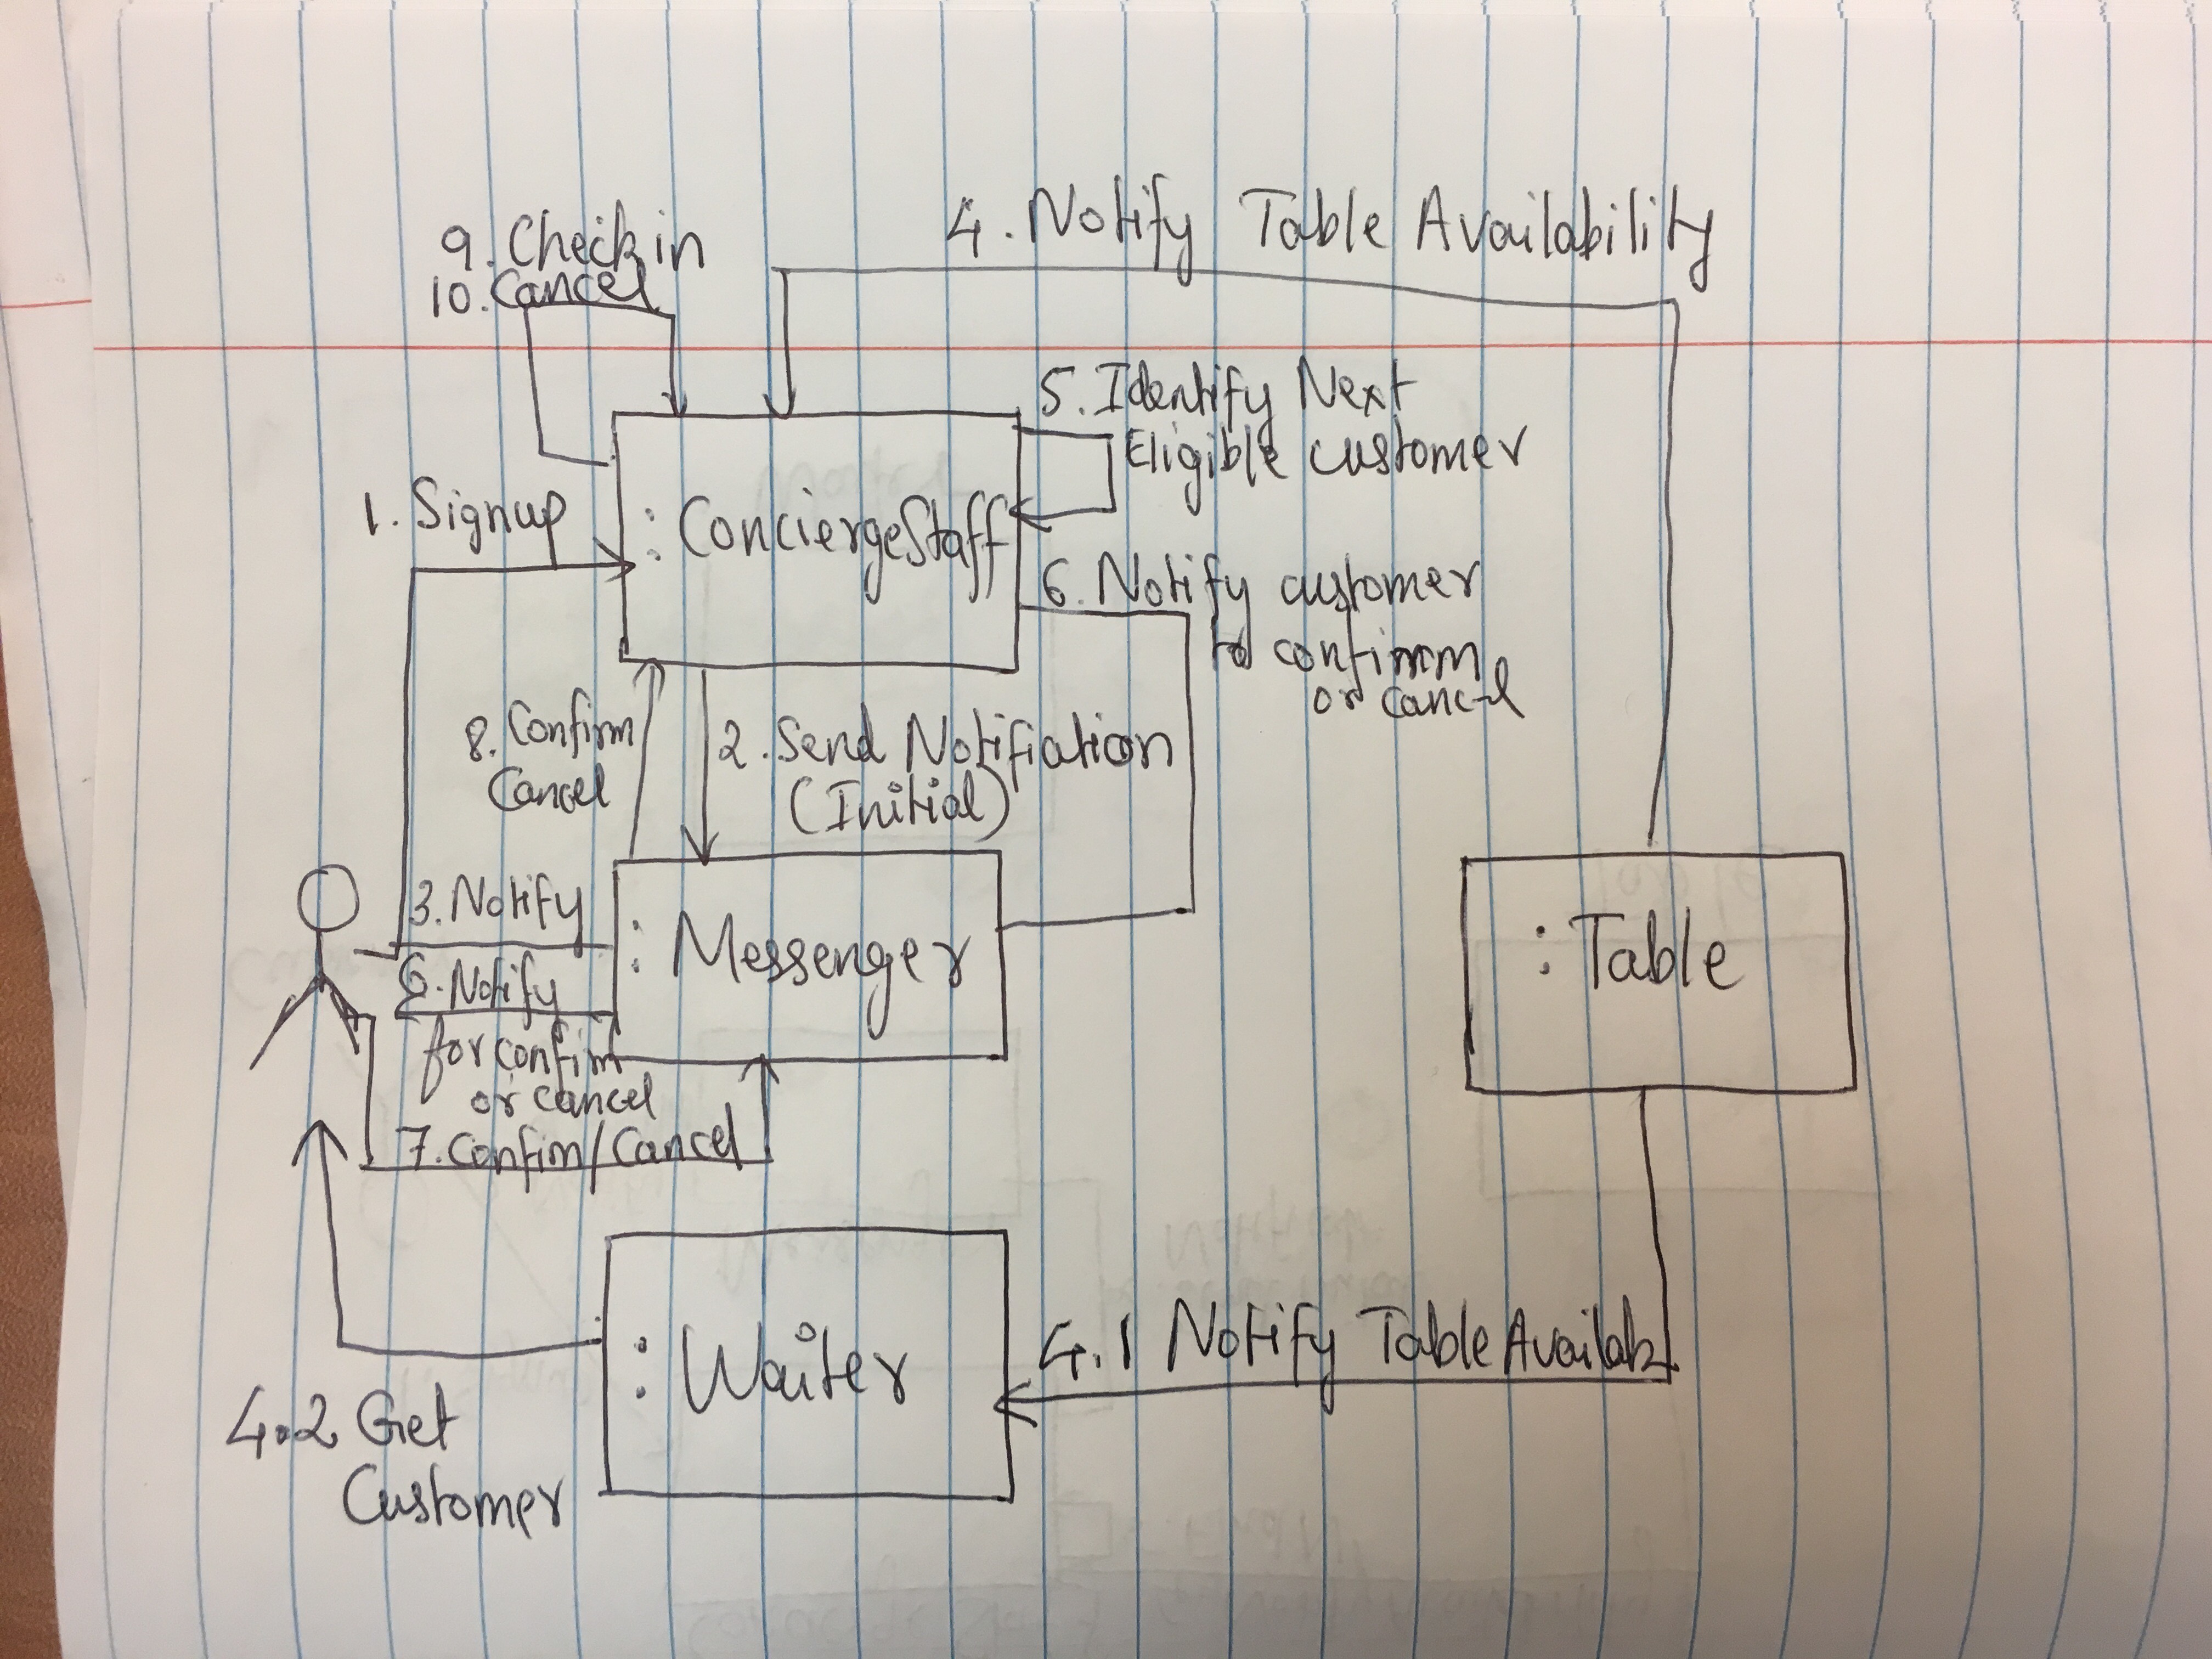 4. Notify Table Availability
9. Check in
10. Cancel
5. Identify Next
Eligible customer
1. Signup
: ConciergeStaff
6. Notify customer
to confirmm
or cancel
8. Confirm
Cancel
2. Send Notifiation
(Initial)
3. Notify
: Messenger
: Table
6. Notify
for confirm
or cancel
7. Confim/Cancel
: Waiter
4.1 Notify Table Availab
4.2 Get
Customer